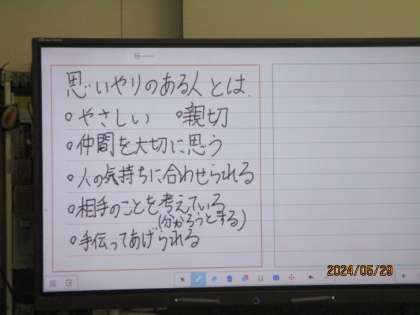 思いやりのある人とは、
○やさしい ○親切
○仲間を大切に思う
○人の気持ちに合わせられる
○相手のことを考えている
(分かろうとする)
○手伝ってあげられる
2024/05/29